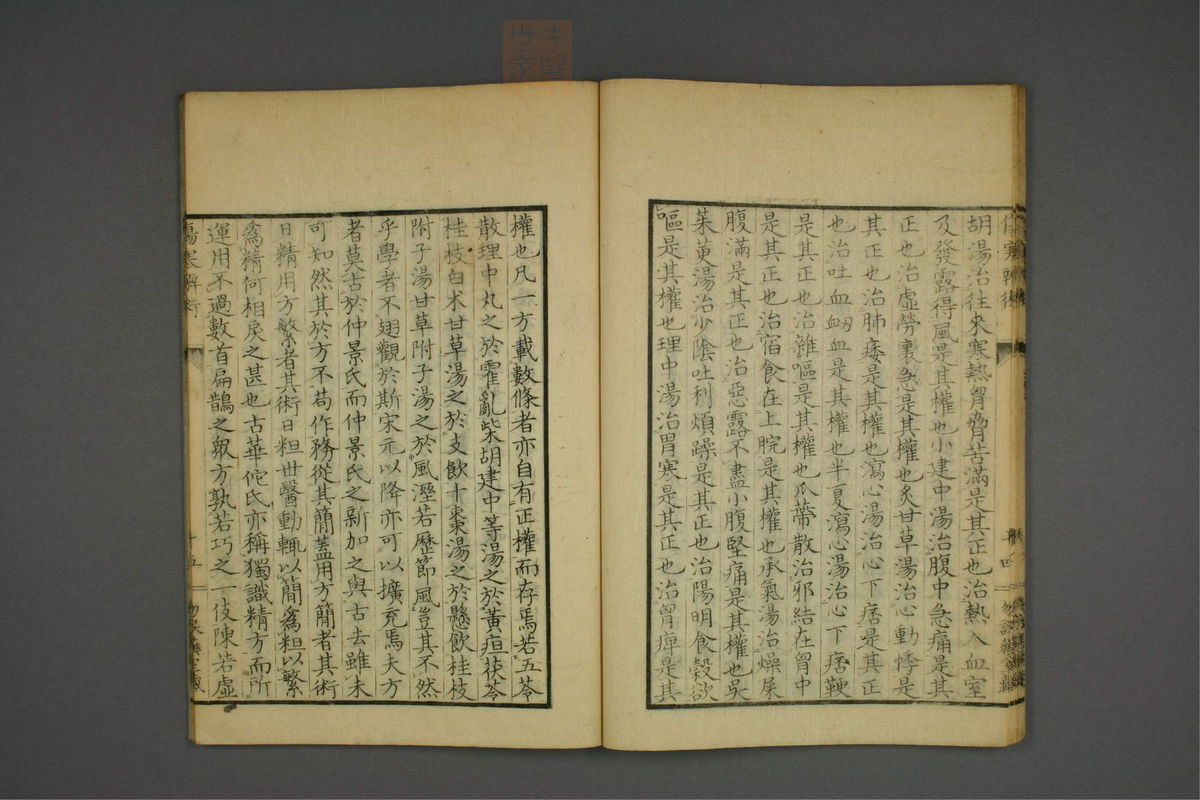 中醫
世家
胡湯治往來寒熱胷脅苦滿是其正也治熱入血室
及發露得風是其權也小建中湯治腹中急痛是其
正也治虛勞裏急是其權也炙甘草湯治心動悸是
其正也治肺痿是其權也瀉心湯治心下痞是其正
也治吐血衂血是其權也半夏瀉心湯治心下痞鞕
是其正也治雜嘔是其權也瓜蒂散治邪結在胷中
是其正也治宿食在上脘是其權也承氣湯治燥屎
腹滿是其正也治惡露不盡小腹堅痛是其權也吳
茱萸湯治少陰吐利煩躁是其正也治陽明食穀欲
嘔是其權也理中湯治胃寒是其正也治胷痺是其
權也凡一方載數條者亦自有正權而存焉若五苓
散理中丸之於霍亂柴胡建中等湯之於黃疸茯苓
桂枝白朮甘草湯之於支飲十棗湯之於懸飲桂枝
附子湯甘草附子湯之於風溼若歷節風豈其不然
乎學者不翅觀於斯宋元以降亦可以擴充焉夫方
者莫古於仲景氏而仲景氏之新加之與古去雖未
可知然其於方不苟作務從其簡蓋用方簡者其術
日精用方繁者其術日粗世醫動輒以簡爲粗以繁
爲精何相戾之甚也古華佗氏亦稱獨識精方而所
運用不過數首扁鵲之眾方孰若巧之一伎陳若虛
傷寒辨術
十五